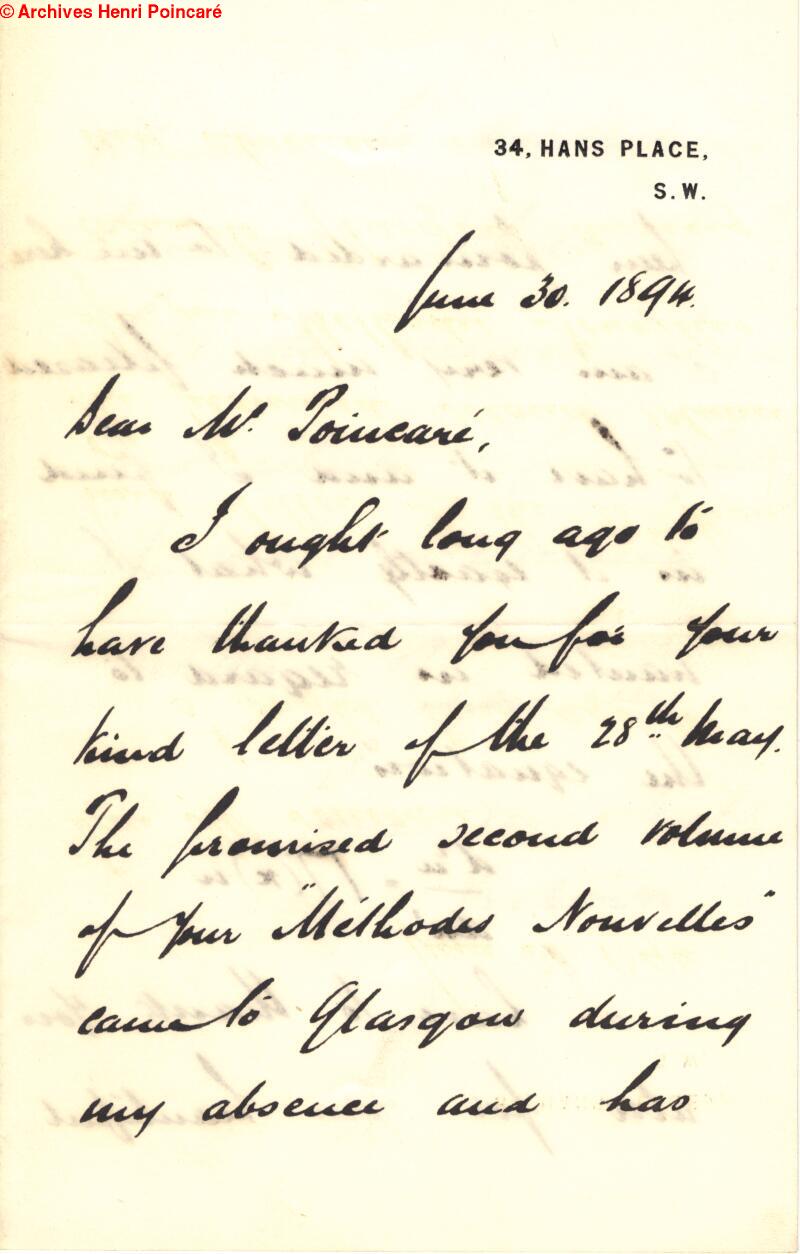 © Archives Henri Poincaré
34, HANS PLACE,
S.W.
June 30. 1894.
Dear Mr. Poincaré,
I ought long ago to
have thanked you for your
kind letter of the 28th May.
The promised second volume
of your "Méthodes Nouvelles"
came to Glasgow during
my absence and has